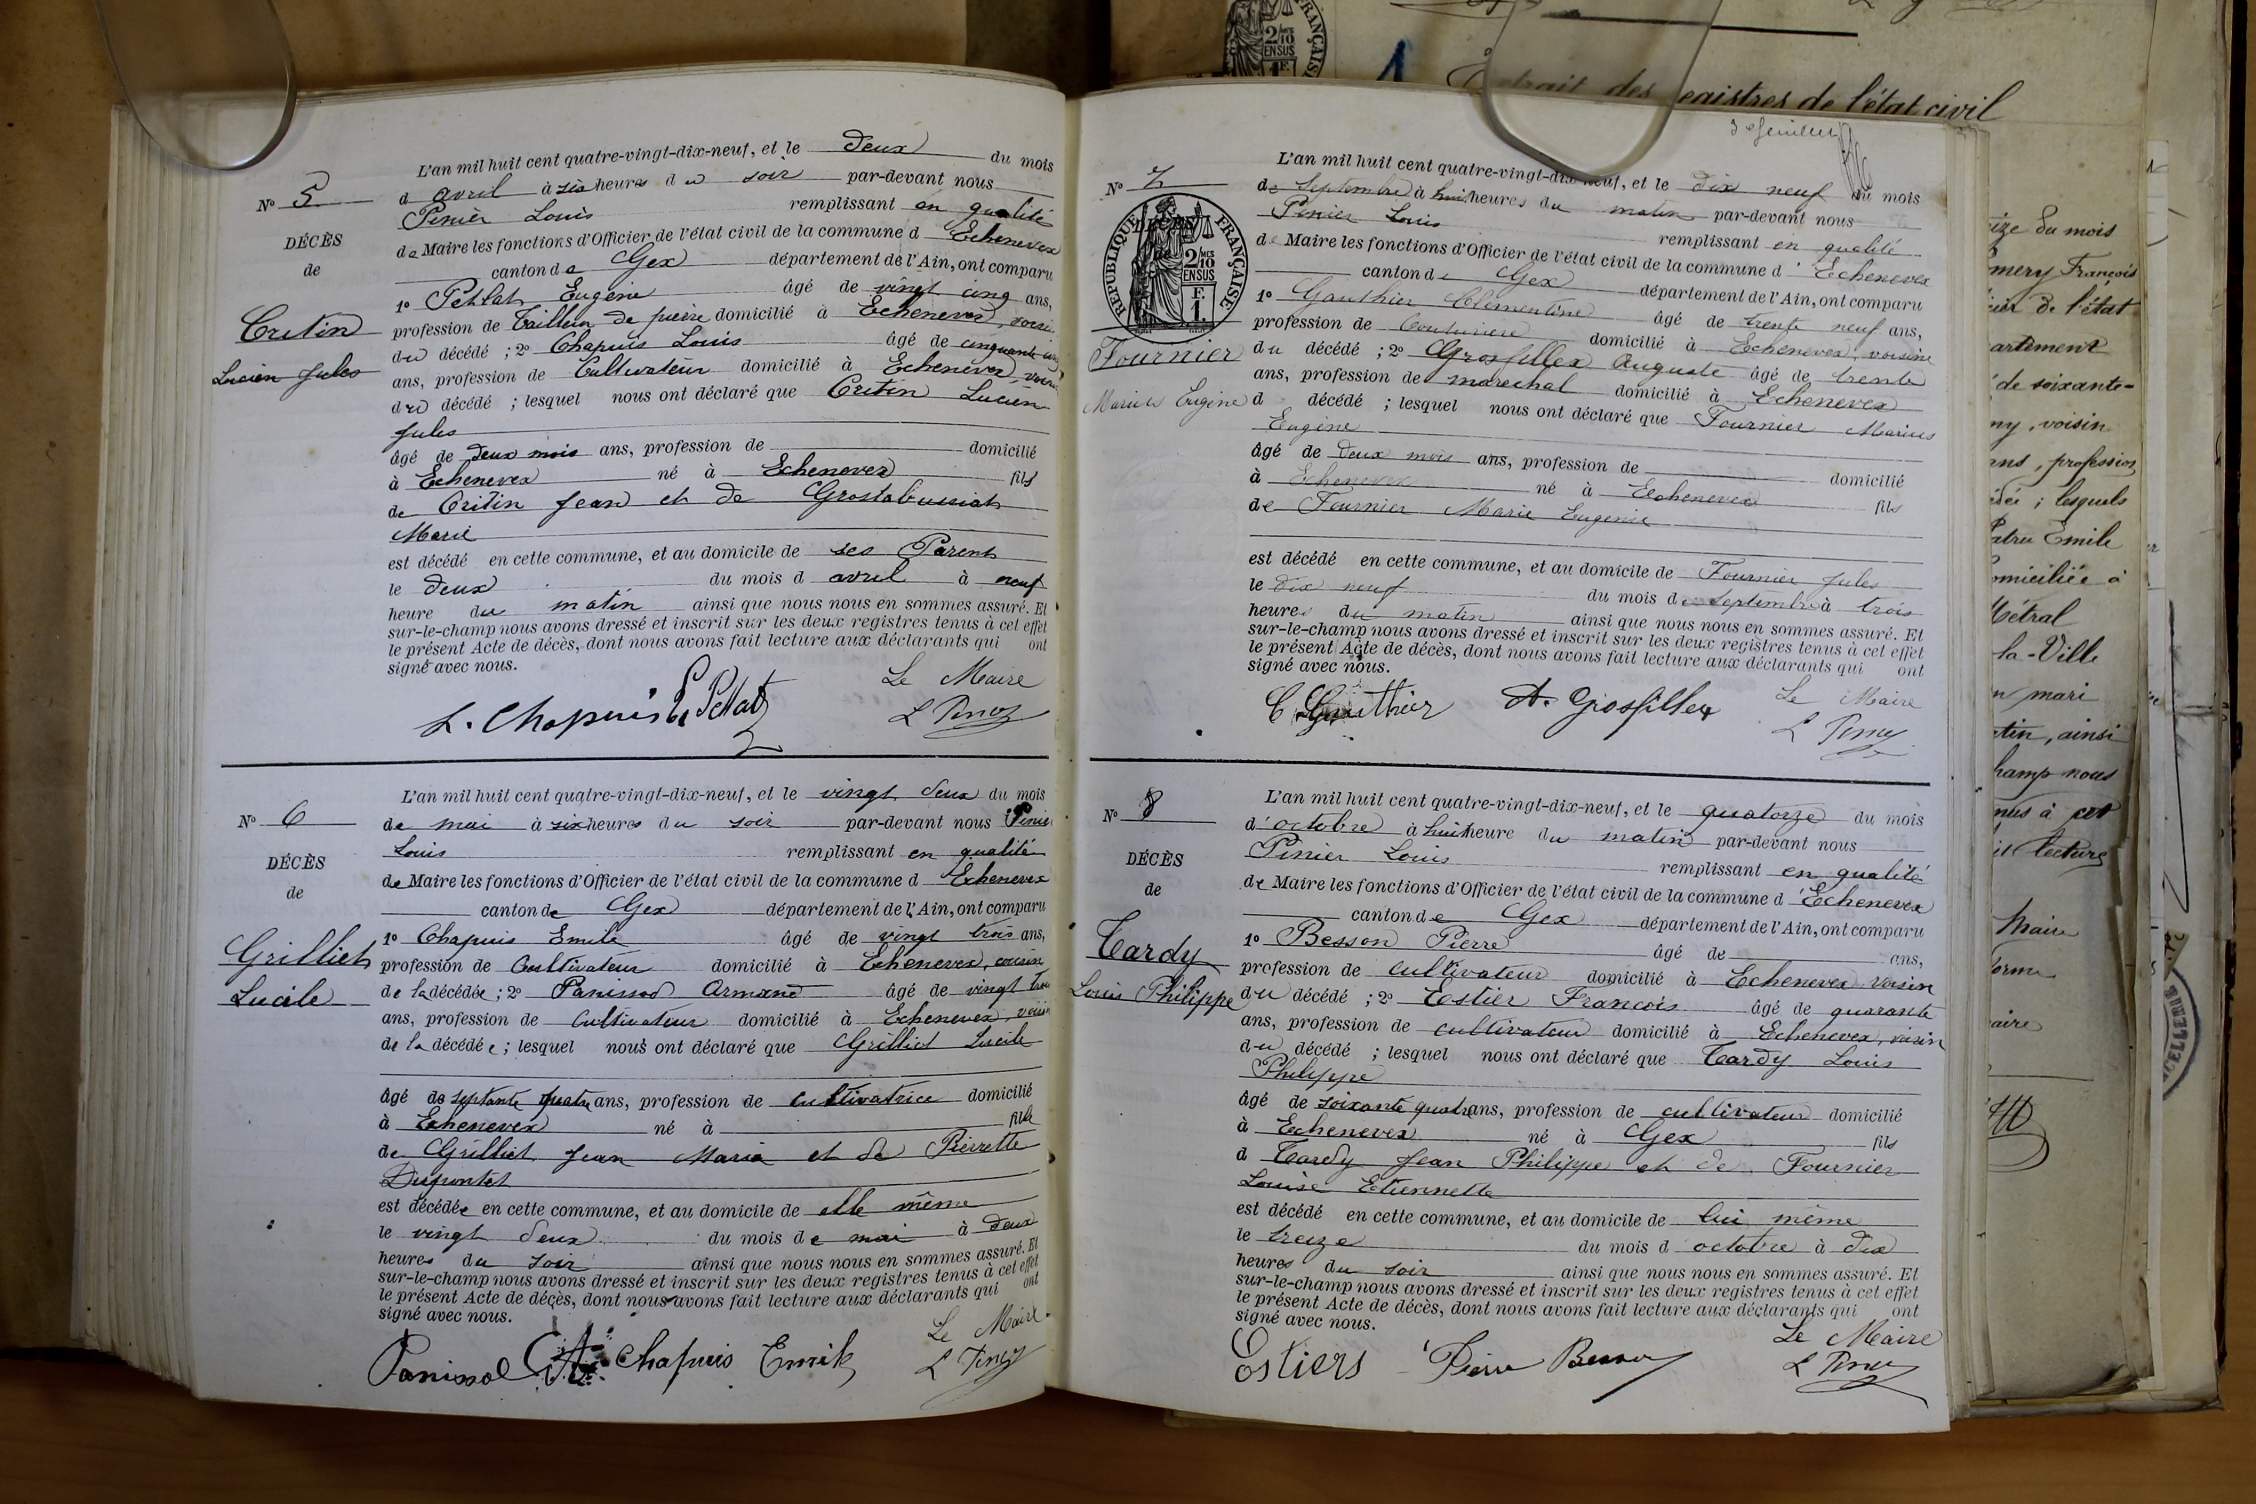 Extrait des registres de l'état civil
N° 5
DÉCÈS
de
Critin
Lucien Jules
L'an mil huit cent quatre-vingt-dix-neuf, et le deux du mois
d avril à six heures du soir par-devant nous
Pinier Louis remplissant en qualité
de Maire les fonctions d'Officier de l'état civil de la commune d Echenevex
canton de Gex département de l'Ain, ont comparu
1° Pellat Eugène âgé de vingt cinq ans,
profession de Tailleur de pierre domicilié à Echenevex, voisin
du décédé ; 2° Chapuis Louis âgé de cinquante cinq
ans, profession de Cultivateur domicilié à Echenevex, voisin
du décédé ; lesquel nous ont déclaré que Critin Lucien
Jules
âgé de deux mois ans, profession de domicilié
à Echenevex né à Echenevex fils
de Critin Jean et de Grostabussiat
Marie
est décédé en cette commune, et au domicile de ses Parents
le deux du mois d avril à neuf
heure du matin ainsi que nous nous en sommes assuré. Et
sur-le-champ nous avons dressé et inscrit sur les deux registres tenus à cet effet
le présent Acte de décès, dont nous avons fait lecture aux déclarants qui ont
signé avec nous.
Le Maire
L. Chapuis E Pellat
N° 6
DÉCÈS
de
Grilliet
Lucile
L'an mil huit cent quatre-vingt-dix-neuf, et le vingt deux du mois
de mai à six heures du soir par-devant nous Pinier
Louis remplissant en qualité
de Maire les fonctions d'Officier de l'état civil de la commune d Echenevex
canton de Gex département de l'Ain, ont comparu
1° Chapuis Emile âgé de vingt trois ans,
profession de Cultivateur domicilié à Echenevex, cousin
de la décédée ; 2° Panissod Armand âgé de vingt trois
ans, profession de Cultivateur domicilié à Echenevex, voisin
de la décédée ; lesquel nous ont déclaré que Grilliet Lucile
âgé de septante quatre ans, profession de cultivatrice domicilié
à Echenevex né à fille
de Grilliet Jean Marie et de Pierrette
Dupontet
est décédée en cette commune, et au domicile de elle même
le vingt deux du mois de mai à deux
heures du soir ainsi que nous nous en sommes assuré. Et
sur-le-champ nous avons dressé et inscrit sur les deux registres tenus à cet effet
le présent Acte de décès, dont nous avons fait lecture aux déclarants qui ont
signé avec nous.
Le Maire
Panissod Chapuis Emile
3e feuillet
N° 7
RÉPUBLIQUE FRANÇAISE
2/10 MES
EN SUS
F.
1.
DÉCÈS
Fournier
Marius Eugène
L'an mil huit cent quatre-vingt-dix-neuf, et le dix neuf du mois
de Septembre à huit heures du matin par-devant nous
Pinier Louis remplissant en qualité
de Maire les fonctions d'Officier de l'état civil de la commune d'Echenevex
canton de Gex département de l'Ain, ont comparu
1° Gauthier Clémentine âgé de trente neuf ans,
profession de Couturière domicilié à Echenevex, voisine
du décédé ; 2° Grosfillex Auguste âgé de trente
ans, profession de marechal domicilié à Echenevex
d décédé ; lesquel nous ont déclaré que Fournier Marius
Eugène
âgé de deux mois ans, profession de domicilié
à Echenevex né à Echenevex fils
de Fournier Marie Eugenie
est décédé en cette commune, et au domicile de Fournier Jules
le dix neuf du mois de Septembre à trois
heures du matin ainsi que nous nous en sommes assuré. Et
sur-le-champ nous avons dressé et inscrit sur les deux registres tenus à cet effet
le présent Acte de décès, dont nous avons fait lecture aux déclarants qui ont
signé avec nous.
Le Maire
C Gauthier A. Grosfillex
N° 8
DÉCÈS
de
Tardy
Louis Philippe
L'an mil huit cent quatre-vingt-dix-neuf, et le quatorze du mois
d'octobre à huit heure du matin par-devant nous
Pinier Louis remplissant en qualité
de Maire les fonctions d'Officier de l'état civil de la commune d'Echenevex
canton de Gex département de l'Ain, ont comparu
1° Besson Pierre âgé de ans,
profession de cultivateur domicilié à Echenevex voisin
du décédé ; 2° Estier François âgé de quarante
ans, profession de cultivateur domicilié à Echenevex, voisin
du décédé ; lesquel nous ont déclaré que Tardy Louis
Philippe
âgé de soixante quatre ans, profession de cultivateur domicilié
à Echenevex né à Gex fils
d Tardy Jean Philippe et de Fournier
Louise Etiennette
est décédé en cette commune, et au domicile de lui même
le treize du mois d octobre à dix
heures du soir ainsi que nous nous en sommes assuré. Et
sur-le-champ nous avons dressé et inscrit sur les deux registres tenus à cet effet
le présent Acte de décès, dont nous avons fait lecture aux déclarants qui ont
signé avec nous.
Le Maire
Estiers Pierre Besson
du mois
François
de l'état
de soixante-
voisin
profession
lesquels
Emile
domiciliée à
Métral
la-Ville
mari
ainsi
champ nous
à cet
lecture
Maire